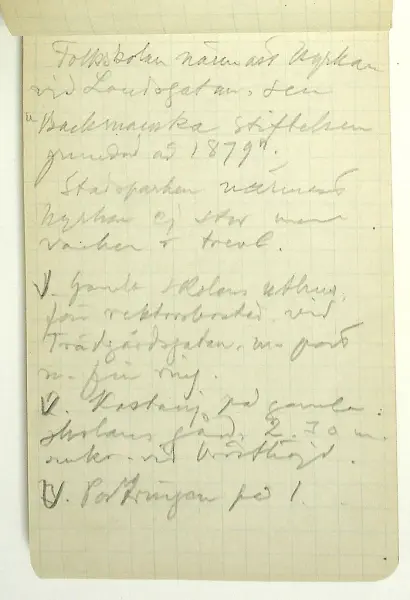 Folkskolan närmast Kyrkan
vid Landsgatan, den
"Backmanska Stiftelsen
grundad år 1879".
Stadsparken närmast
Kyrkan ej stor men
vacker o trevl.
V. Gamla skolans uthus,
förr rektorsbostad vid
Trädgårdsgatan. m. port
m. fin ring.
V. Kastanj på gamla
skolans gård, 2.70 m
omkr. vid brösthöjd.
V. Portringen på 1.